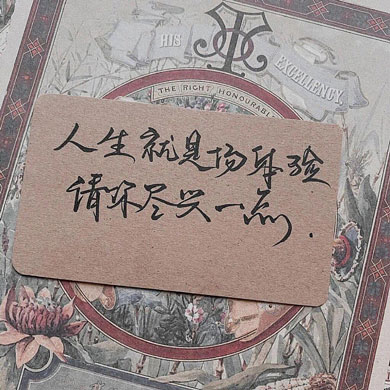 HIS
EXCELLENCY
THE RIGHT HONOURABLE
人生就是场体验
请你尽兴一点.